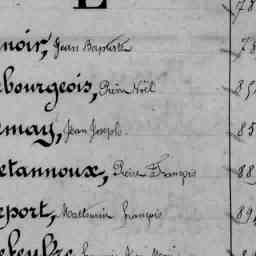 L 78
noir, Jean Baptiste 78
bourgeois, Pierre Noël 85
emay, Jean Joseph. 85
etannoux, Pierre François 88
eport, Mathurin François 89
efeubre